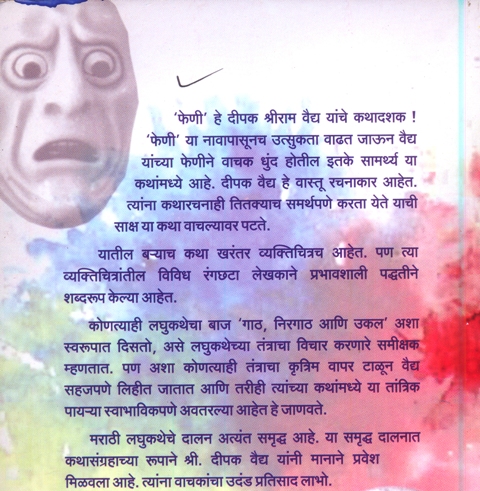 'फेणी' हे दीपक श्रीराम वैद्य यांचे कथादशक !
'फेणी' या नावापासूनच उत्सुकता वाढत जाऊन वैद्य
यांच्या फेणीने वाचक धुंद होतील इतके सामर्थ्य या
कथांमध्ये आहे. दीपक वैद्य हे वास्तू रचनाकार आहेत.
त्यांना कथारचनाही तितक्याच समर्थपणे करता येते याची
साक्ष या कथा वाचल्यावर पटते.
यातील बऱ्याच कथा खरंतर व्यक्तिचित्रच आहेत. पण त्या
व्यक्तिचित्रांतील विविध रंगछटा लेखकाने प्रभावशाली पद्धतीने
शब्दरूप केल्या आहेत.
कोणत्याही लघुकथेचा बाज 'गाठ, निरगाठ आणि उकल' अशा
स्वरूपात दिसतो, असे लघुकथेच्या तंत्राचा विचार करणारे समीक्षक
म्हणतात. पण अशा कोणत्याही तंत्राचा कृत्रिम वापर टाळून वैद्य
सहजपणे लिहीत जातात आणि तरीही त्यांच्या कथांमध्ये या तांत्रिक
पायऱ्या स्वाभाविकपणे अवतरल्या आहेत हे जाणवते.
मराठी लघुकथेचे दालन अत्यंत समृद्ध आहे. या समृद्ध दालनात
कथासंग्रहाच्या रूपाने श्री. दीपक वैद्य यांनी मानाने प्रवेश
मिळवला आहे. त्यांना वाचकांचा उदंड प्रतिसाद लाभो.